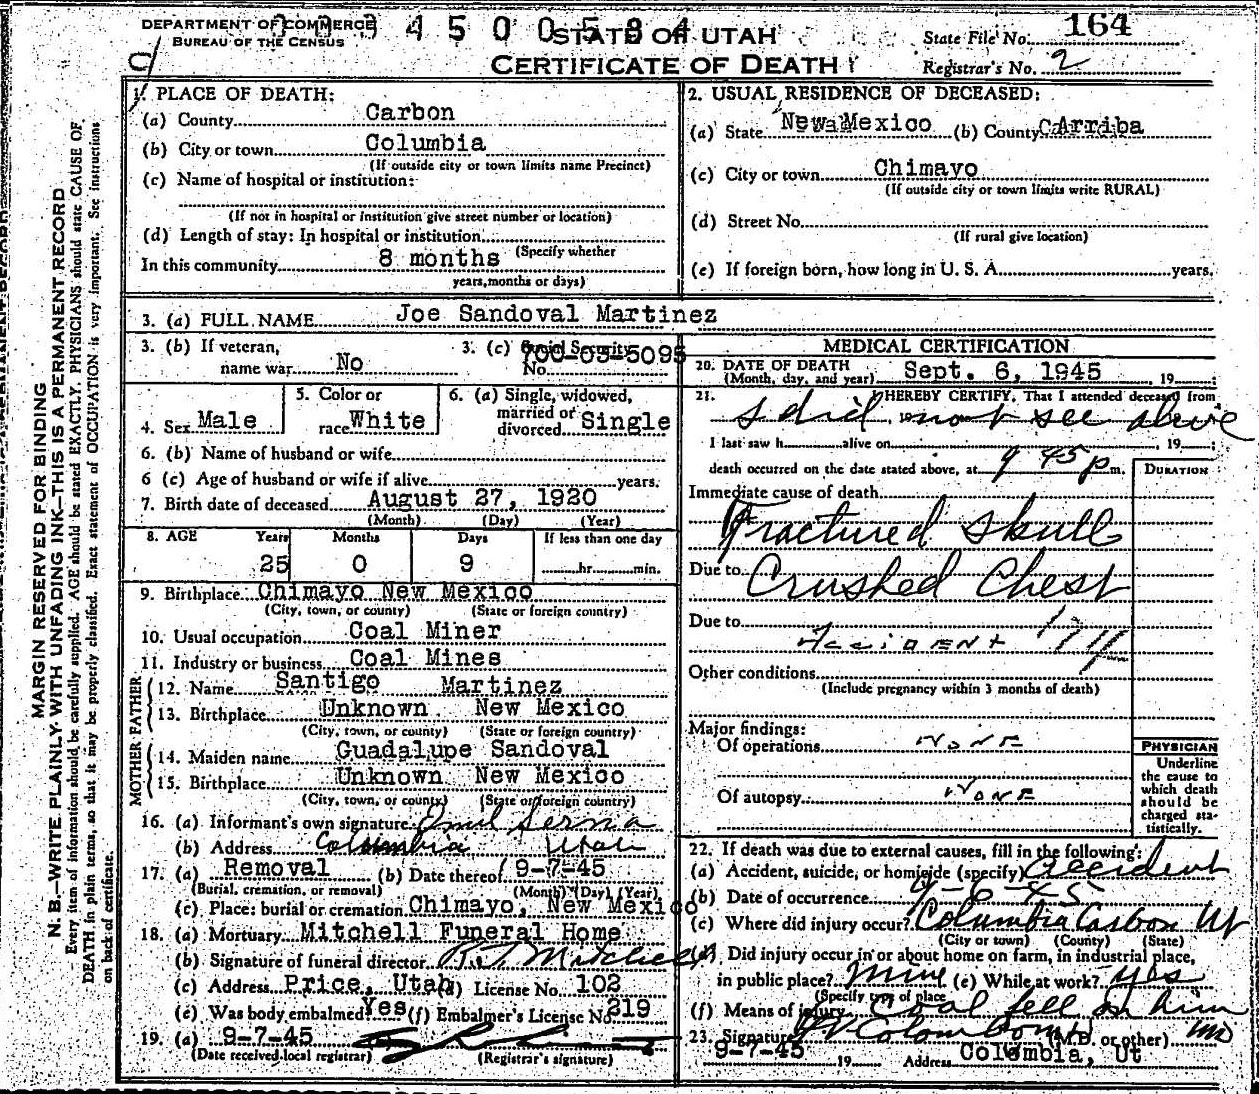 DEPARTMENT OF COMMERCE
BUREAU OF THE CENSUS
4 5 0 0 5 8 4
STATE OF UTAH
CERTIFICATE OF DEATH
State File No. 164
Registrar's No. 2
MARGIN RESERVED FOR BINDING
N. B.—WRITE PLAINLY WITH UNFADING INK—THIS IS A PERMANENT RECORD
Every item of information should be carefully supplied. AGE should be stated EXACTLY. PHYSICIANS should state CAUSE OF
DEATH in plain terms, so that it may be properly classified. Exact statement of OCCUPATION is very important. See instructions
on back of certificate.
1. PLACE OF DEATH:
(a) County Carbon
(b) City or town Columbia
(If outside city or town limits name Precinct)
(c) Name of hospital or institution:
(If not in hospital or institution give street number or location)
(d) Length of stay: In hospital or institution
(Specify whether
In this community 8 months
years, months or days)
2. USUAL RESIDENCE OF DECEASED:
(a) State New Mexico (b) County Arriba
(c) City or town Chimayo
(If outside city or town limits write RURAL)
(d) Street No.
(If rural give location)
(e) If foreign born, how long in U. S. A. years.
3. (a) FULL NAME Joe Sandoval Martinez
3. (b) If veteran, name war No
3. (c) Social Security No. 700-03-5095
4. Sex Male
5. Color or race White
6. (a) Single, widowed, married or divorced Single
6. (b) Name of husband or wife
6 (c) Age of husband or wife if alive years.
7. Birth date of deceased August 27, 1920
(Month) (Day) (Year)
8. AGE Years Months Days If less than one day
25 0 9 hr. min.
9. Birthplace Chimayo New Mexico
(City, town, or county) (State or foreign country)
10. Usual occupation Coal Miner
11. Industry or business Coal Mines
FATHER
12. Name Santigo Martinez
13. Birthplace Unknown New Mexico
(City, town, or county) (State or foreign country)
MOTHER
14. Maiden name Guadalupe Sandoval
15. Birthplace Unknown New Mexico
(City, town, or county) (State or foreign country)
16. (a) Informant's own signature Emil Serna
(b) Address Columbia Utah
17. (a) Removal (b) Date thereof 9-7-45
(Burial, cremation, or removal) (Month) (Day) (Year)
(c) Place: burial or cremation Chimayo, New Mexico
18. (a) Mortuary Mitchell Funeral Home
(b) Signature of funeral director Mitchell
(c) Address Price, Utah (d) License No. 102
(e) Was body embalmed Yes (f) Embalmer's License No. 219
19. (a) 9-7-45
(Date received local registrar) (Registrar's signature)
MEDICAL CERTIFICATION
20. DATE OF DEATH
(Month, day, and year) Sept. 6, 1945, 19
21. I HEREBY CERTIFY, That I attended deceased from
I did not see alive
I last saw h alive on , 19
death occurred on the date stated above, at 9 45 p m.
DURATION
Immediate cause of death
Fractured Skull
Due to Crushed Chest
Due to
Accident 1711
Other conditions
(Include pregnancy within 3 months of death)
Major findings:
Of operations None
Of autopsy None
PHYSICIAN
Underline
the cause to
which death
should be
charged sta-
tistically.
22. If death was due to external causes, fill in the following:
(a) Accident, suicide, or homicide (specify) Accident
(b) Date of occurrence 9-6-45
(c) Where did injury occur? Columbia Carbon Ut
(City or town) (County) (State)
(d) Did injury occur in or about home on farm, in industrial place,
in public place? Mine (e) While at work? yes
(Specify type of place
(f) Means of injury Coal fell on him
23. Signature Colombo (M.D. or other) MD
9-7-45 19 Address Columbia, Ut